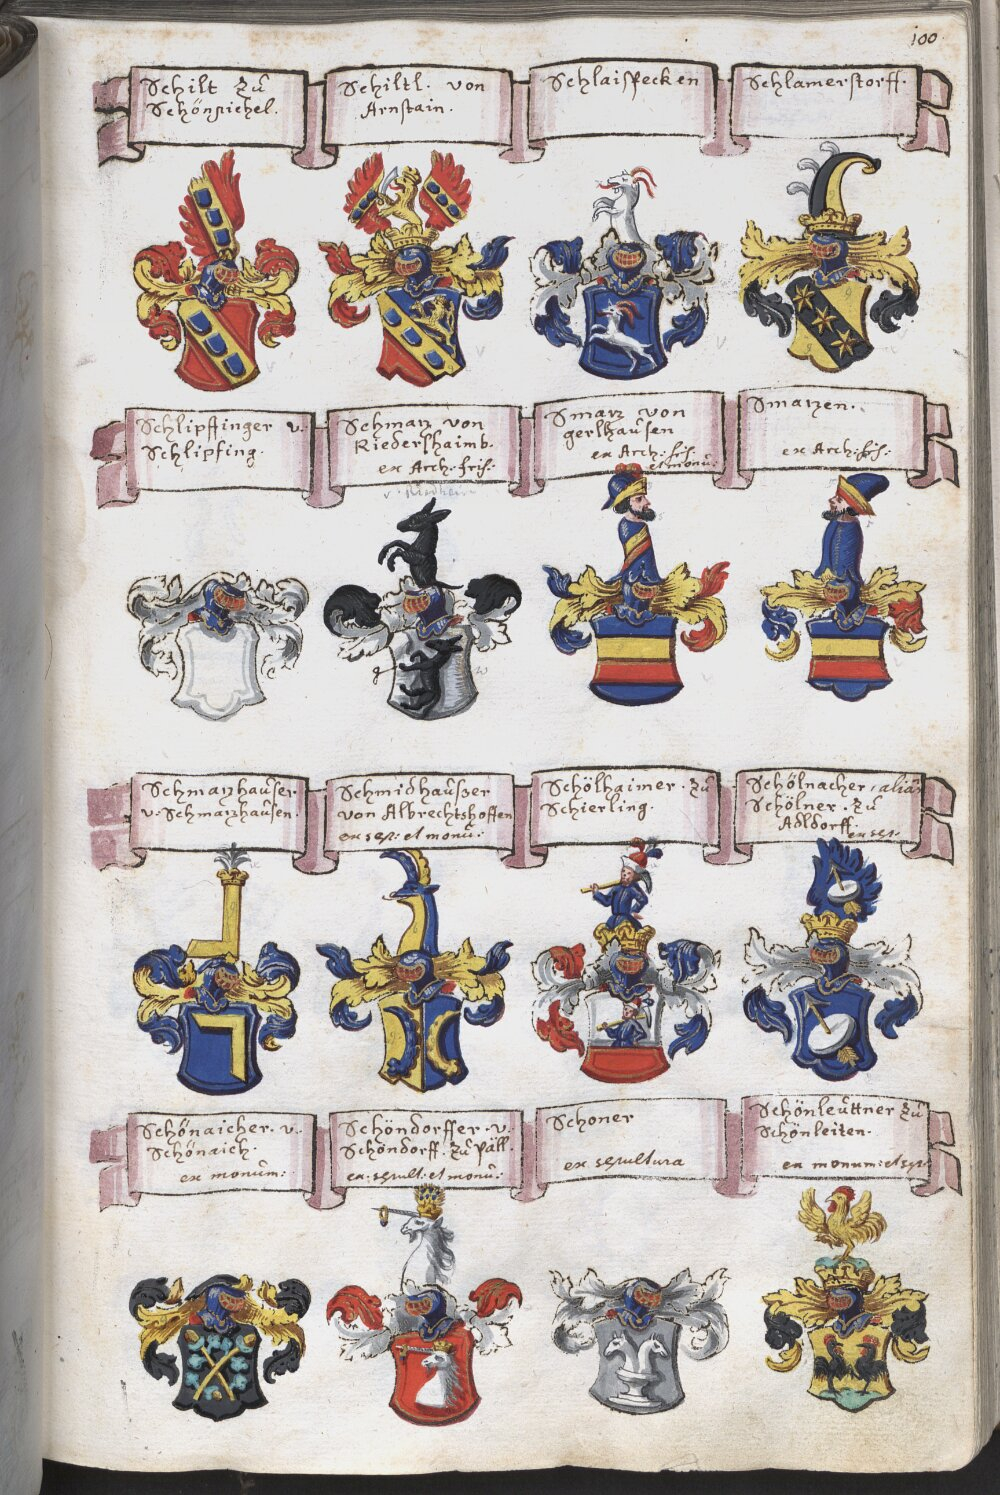 100.
Schilt Zů
Schönsichel.
Schiltl. von
Arnstain.
Schlaispecken
Schlamerstorff.
Schlipffinger v.
Schlipfing.
Schmarz von
Riedershaimb.
ex Arch: fris:
Smarz von
gerlhaůsen
ex Arch: fris:
et monů:
Smarzen.
ex Arch: fris:
Schmarzhaůser
v. Schmarzhaůsen.
Schmidhaůser
von Albrechtshoffen
ex sep: et monů:
Schölhaimer. Zů
Schierling.
Schölnacher, aliàs
Schölner. Zů
Adldorff.
ex sep:
Schönaicher. v.
Schönaich.
ex monum:
Schöndorffer. v.
Schöndorff. Zů Päll.
ex. sepult. et monů:
Schoner
ex sepultura
Schönleüttner Zů
Schönleiten.
ex monum: et sep: